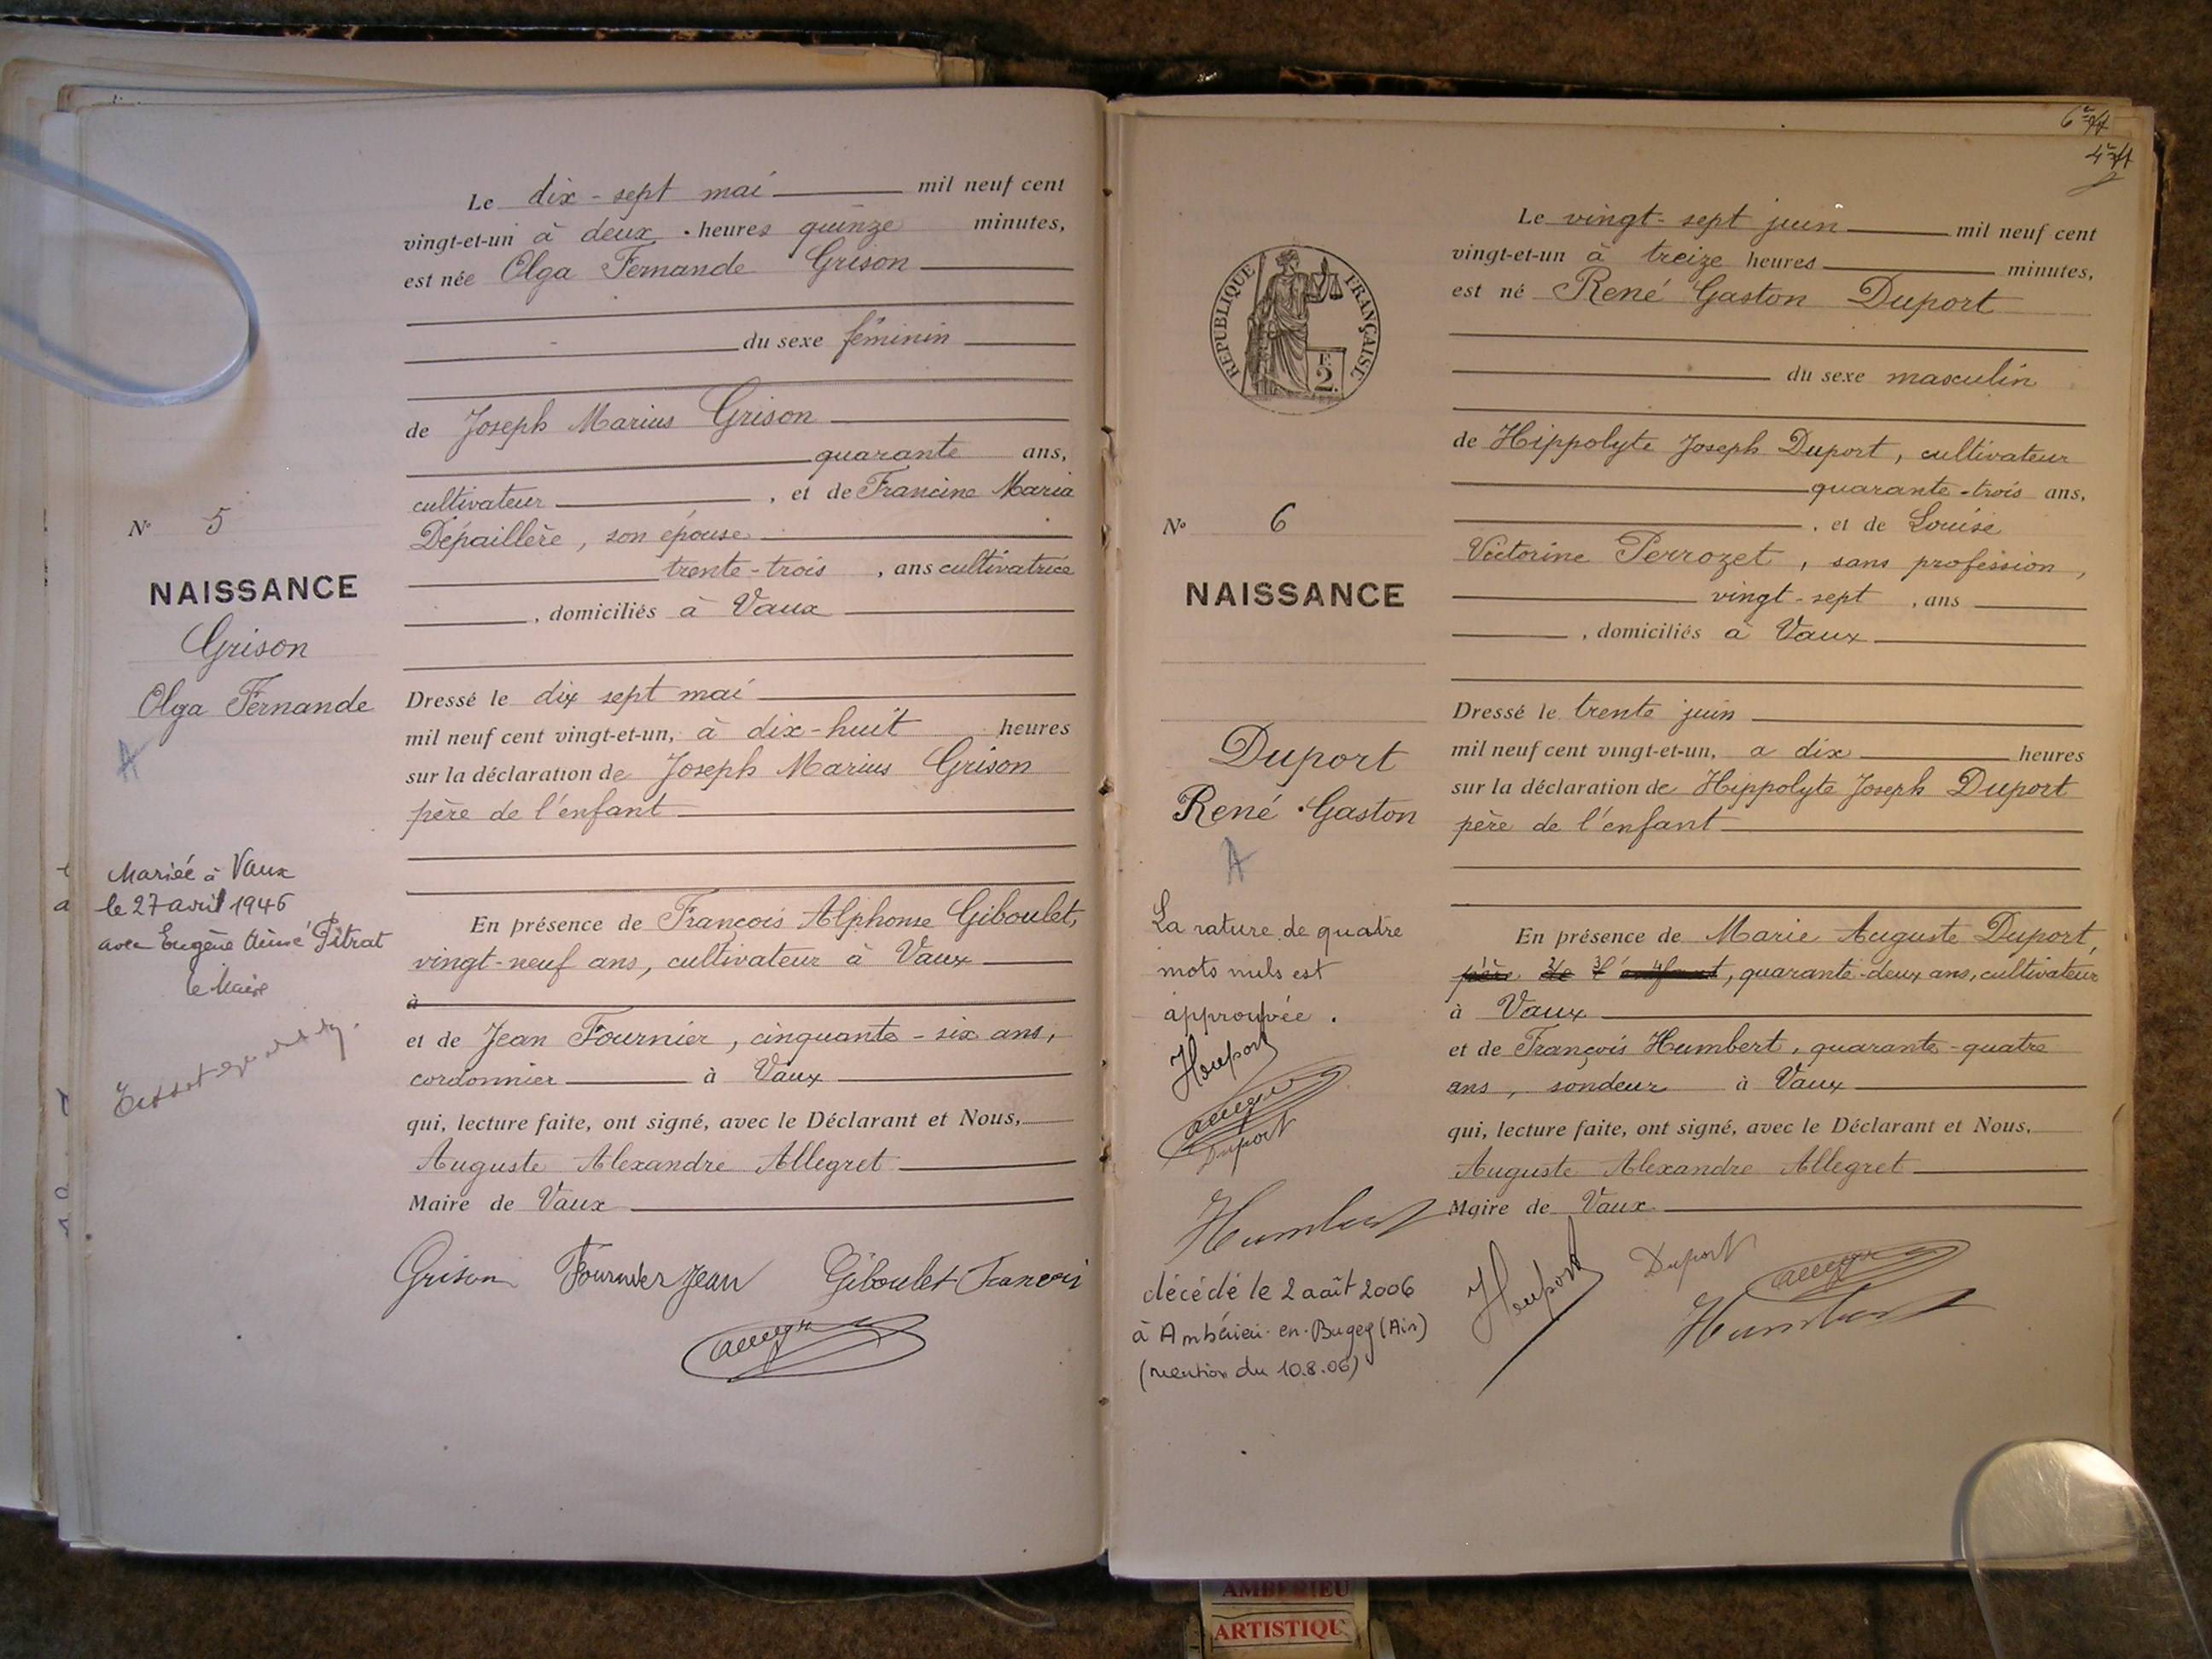 Le dix-sept mai mil neuf cent
vingt-et-un à deux heures quinze minutes,
est née Olga Fernande Grison
du sexe féminin
de Joseph Marius Grison
quarante ans,
cultivateur , et de Francine Maria
Dépaillère, son épouse
trente-trois , ans cultivatrice
, domiciliés à Vaux
Dressé le dix sept mai
mil neuf cent vingt-et-un, à dix-huit heures
sur la déclaration de Joseph Marius Grison
père de l'enfant
En présence de François Alphonse Giboulet,
vingt-neuf ans, cultivateur à Vaux
à
et de Jean Fournier, cinquante-six ans,
cordonnier à Vaux
qui, lecture faite, ont signé, avec le Déclarant et Nous,
Auguste Alexandre Allegret
Maire de Vaux
Grison Fournier Jean Giboulet Francois
N° 5
NAISSANCE
Grison
Olga Fernande
A
Mariée à Vaux
le 27 avril 1946
avec Eugène Aimé Pitrat
le Maire
RÉPUBLIQUE FRANÇAISE
F.
2.
N° 6
NAISSANCE
Duport
René Gaston
A
La rature de quatre
mots nuls est
approuvée.
Hduport
Duport
Humbert
décédé le 2 août 2006
à Ambérieu-en-Bugey (Ain)
(mention du 10.8.06)
Le vingt-sept juin mil neuf cent
vingt-et-un à treize heures minutes,
est né René Gaston Duport
du sexe masculin
de Hippolyte Joseph Duport, cultivateur
quarante-trois ans,
, et de Louise
Victorine Perrozet, sans profession,
vingt-sept , ans
, domiciliés à Vaux
Dressé le trente juin
mil neuf cent vingt-et-un, a dix heures
sur la déclaration de Hippolyte Joseph Duport
père de l'enfant
En présence de Marie Auguste Duport,
père de l'enfant, quarante-deux ans, cultivateur
à Vaux
et de François Humbert, quarante-quatre
ans, sondeur à Vaux
qui, lecture faite, ont signé, avec le Déclarant et Nous,
Auguste Alexandre Allegret
Maire de Vaux
Hduport Duport
Humbert
AMBERIEU
ARTISTIQU